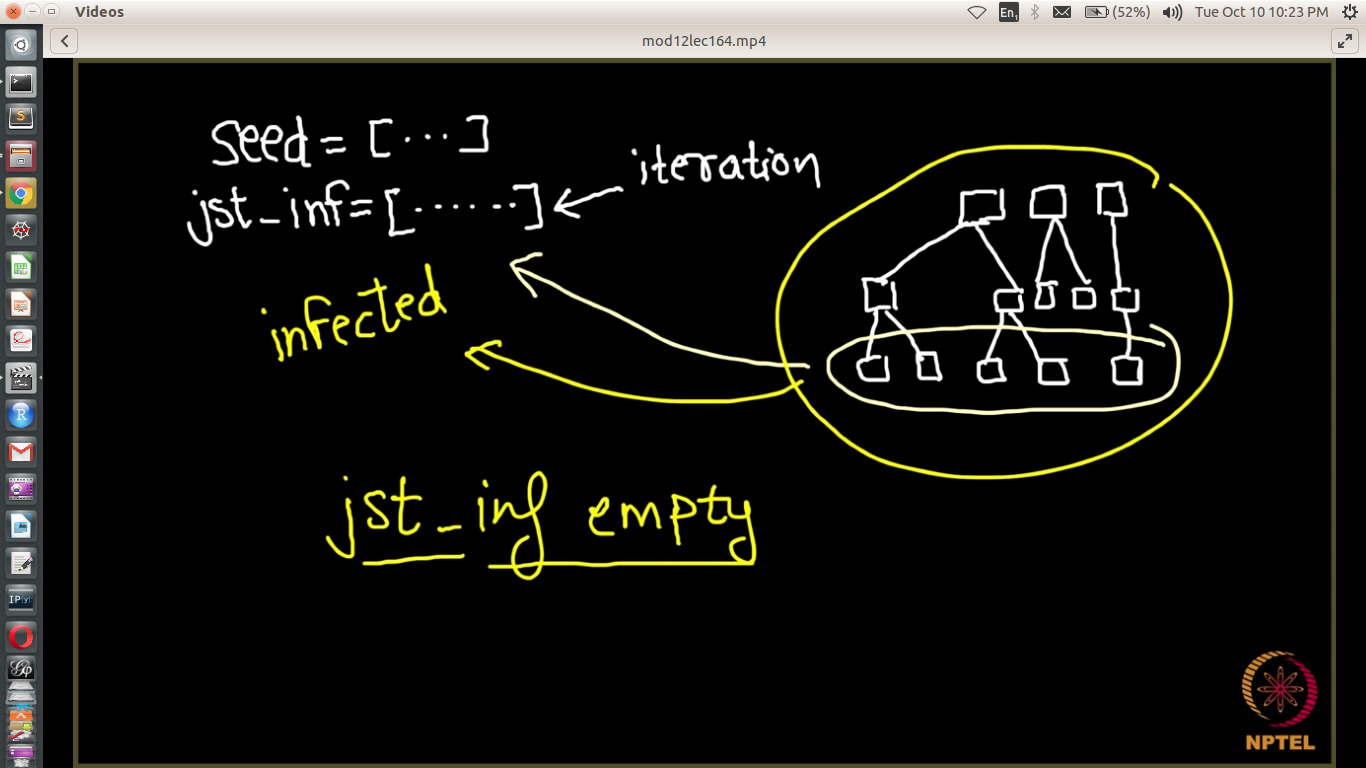 Videos
En1
(52%)
Tue Oct 10 10:23 PM
mod12lec164.mp4
seed = [...]
jst_inf = [......]
iteration
infected
jst_inf empty
NPTEL